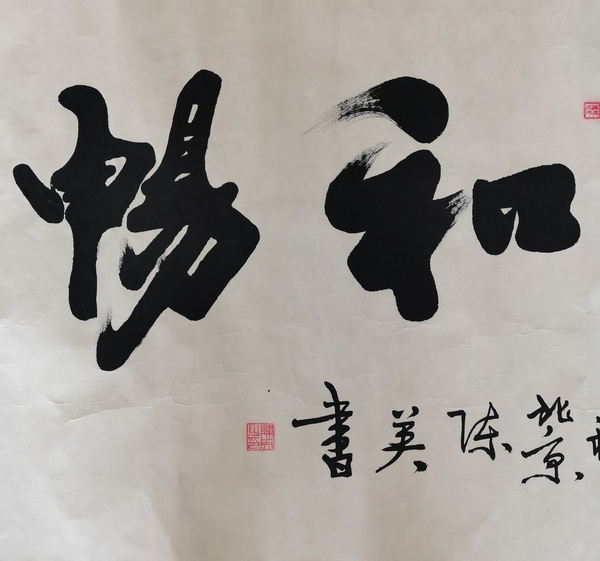 和畅
北京陈美书